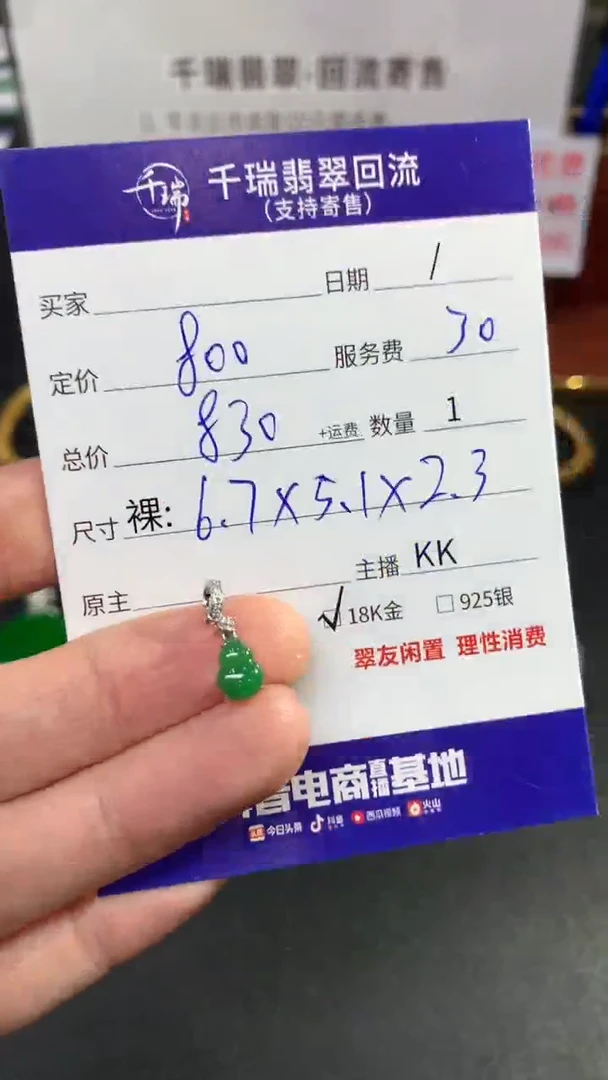 千瑞翡翠·回流寄售
千瑞
千瑞翡翠回流
(支持寄售)
买家 日期 /
定价 800 服务费 30
总价 830 +运费 数量 1
尺寸 裸: 6.7×5.1×2.3
原主 主播 KK
✓18K金 □925银
翠友闲置 理性消费
电商直播基地
头条 今日头条 抖音 西瓜视频 火山